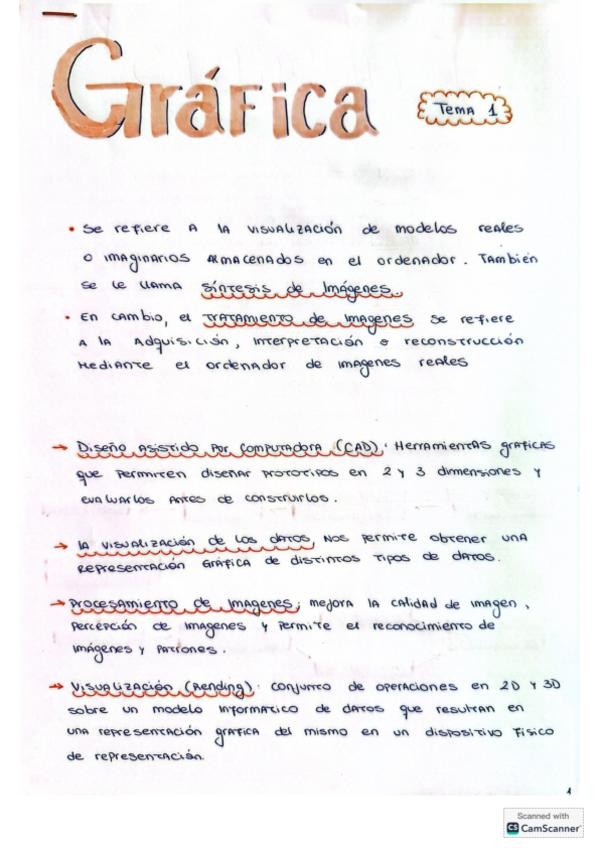 Gráfica
Tema 1
• Se refiere a la visualización de modelos reales
o imaginarios almacenados en el ordenador. También
se le llama síntesis de Imágenes.
• En cambio, el tratamiento de imagenes se refiere
a la adquisición, interpretación o reconstrucción
mediante el ordenador de imagenes reales
→ Diseño asistido por computadora (CAD): Herramientas graficas
que permiten diseñar prototipos en 2 y 3 dimensiones y
evaluarlos antes de construirlos.
→ la visualización de los datos, nos permite obtener una
representación gráfica de distintos tipos de datos.
→ Procesamiento de imagenes; mejora la calidad de imagen,
percepción de imagenes y permite el reconocimiento de
imágenes y patrones.
→ Visualización (Rending): conjunto de operaciones en 2D y 3D
sobre un modelo informatico de datos que resultan en
una representación grafica del mismo en un dispositivo físico
de representación.
1
Scanned with
CS CamScanner